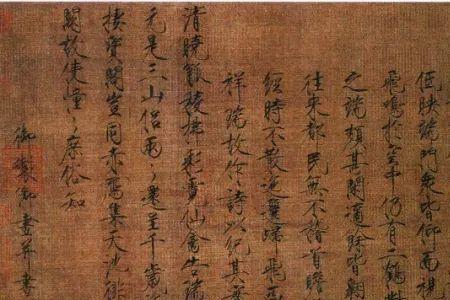 低映端門衆皆仰而視
飛鳴於空中仍有二鶴對
之端頗甚閒適餘皆翱
往來都民無不稽首瞻
經時不散迤邐歸飛西
祥瑞故作詩以紀其實
清曉觚稜拂彩霓仙禽告瑞
元是三山侶兩〻還呈千歲
棲寶閣豈同赤鴈集天池徘
闕故使憧〻庶俗知
御製御畫并書